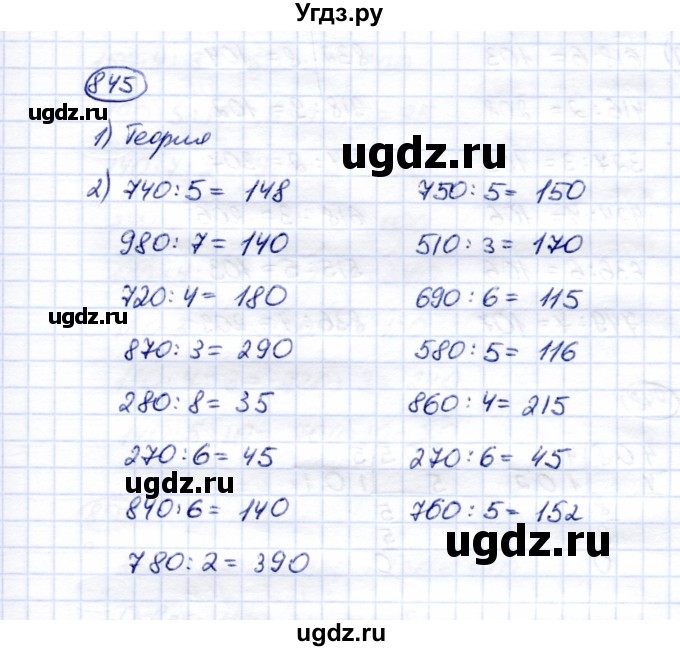 Угдз.ру
845
ugdz.ru
1) Теория
ugdz.ru
2) 740:5= 148 750:5= 150
980:7=140 510:3=170
720:4= 180 690:6= 115
ugdz.ru
870:3=290 580:5= 116
ugdz.ru
280:8=35 860:4=215
270:6=45 270:6= 45
ugdz.ru
840:6= 140 760:5=152
ugdz.ru
780:2= 390
ugdz.ru